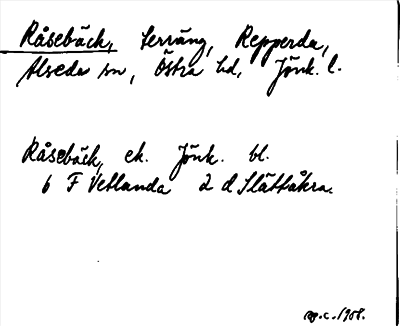 Råsebäck, terräng, Repperda,
Alseda sn, Östra hd, Jönk. l.
Råsebäck, ek. Jönk. bl.
6 F Vetlanda 2 d Slättåkra.
rg.c. 1958.